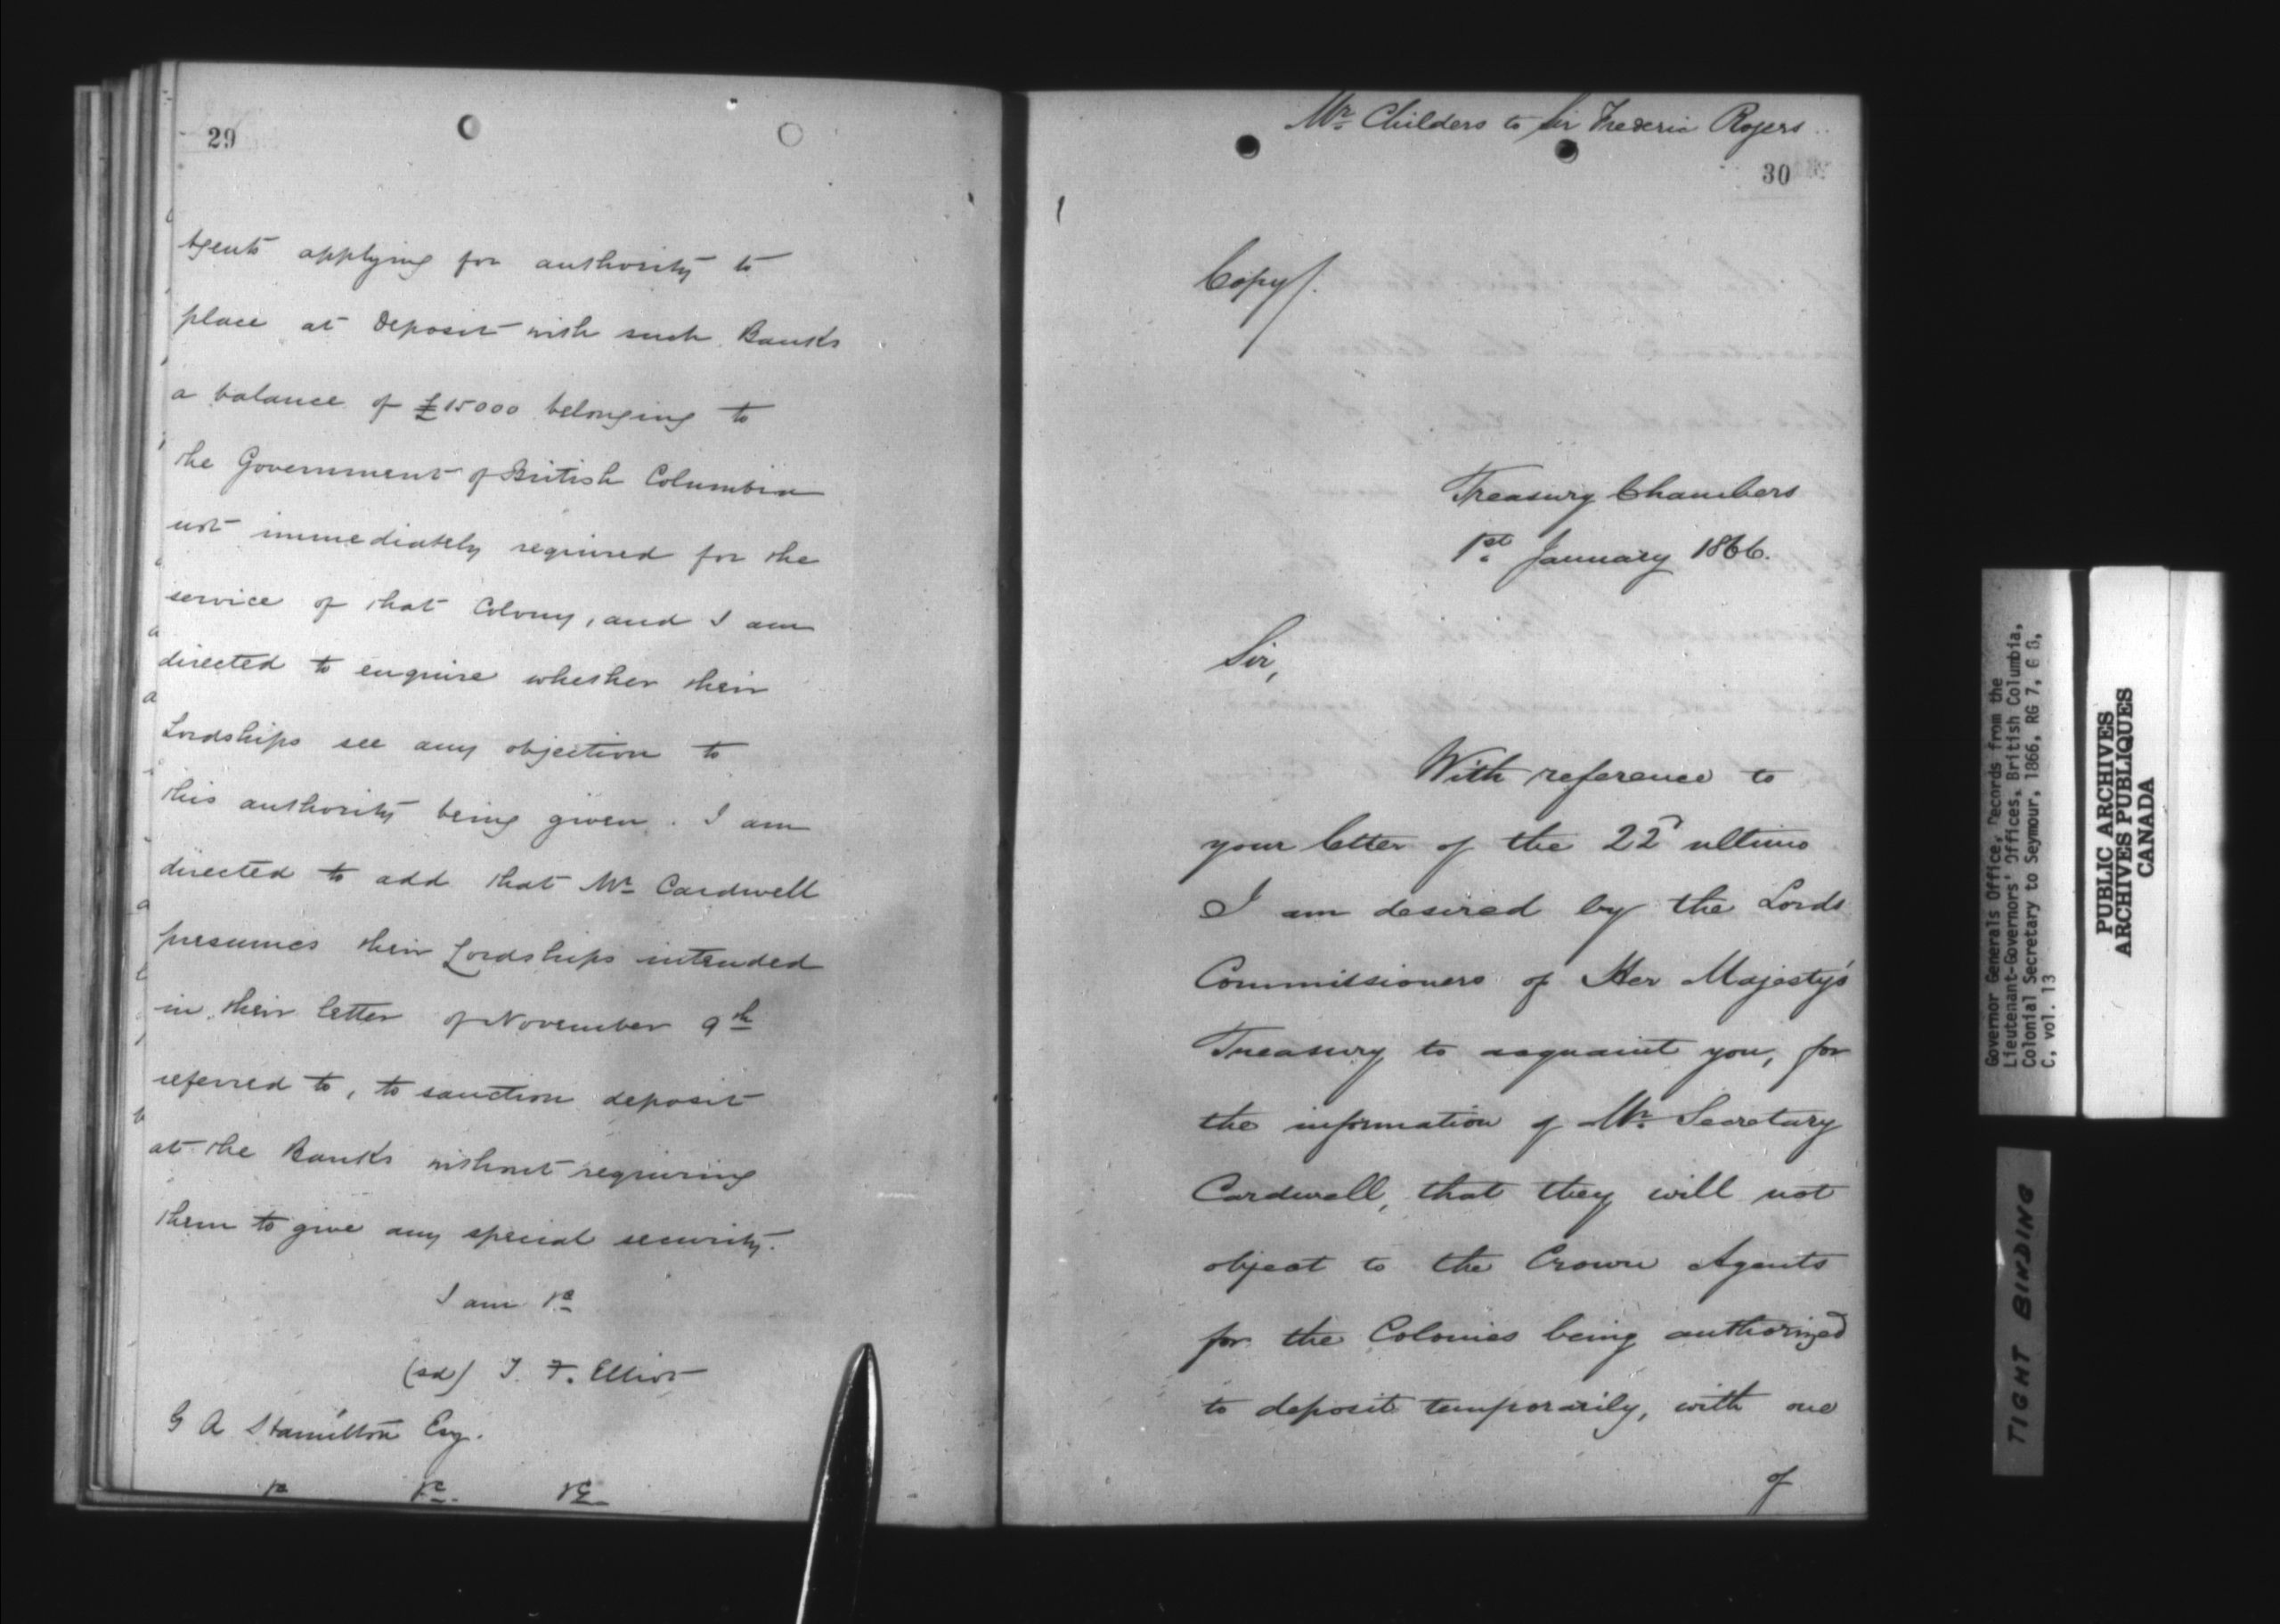 29
Agents applying for authority to
place at Deposit with such Banks
a balance of £15000 belonging to
the Government of British Columbia
not immediately required for the
service of that Colony, and I am
directed to enquire whether their
Lordships see any objection to
this authority being given. I am
directed to add that Mr Cardwell
presumes their Lordships intended
in their letter of November 9th
referred to, to sanction deposit
at the Banks without requiring
them to give any special security.
I am &c
(sd) T. F. Elliot
G A Hamilton Esq.
&c &c &c
Mr. Childers to Sir Frederic Rogers
30
Copy/.
Treasury Chambers
1st January 1866.
Sir,
With reference to
your letter of the 22d ultimo
I am desired by the Lords
Commissioners of Her Majesty's
Treasury to acquaint you, for
the information of Mr. Secretary
Cardwell, that they will not
object to the Crown Agents
for the Colonies being authorized
to deposit temporarily, with one
of
Governor Generals Office, Records from the
Lieutenant-Governors' Offices, British Columbia,
Colonial Secretary to Seymour, 1866, RG 7, G 8,
C, vol. 13
PUBLIC ARCHIVES
ARCHIVES PUBLIQUES
CANADA
TIGHT BINDING